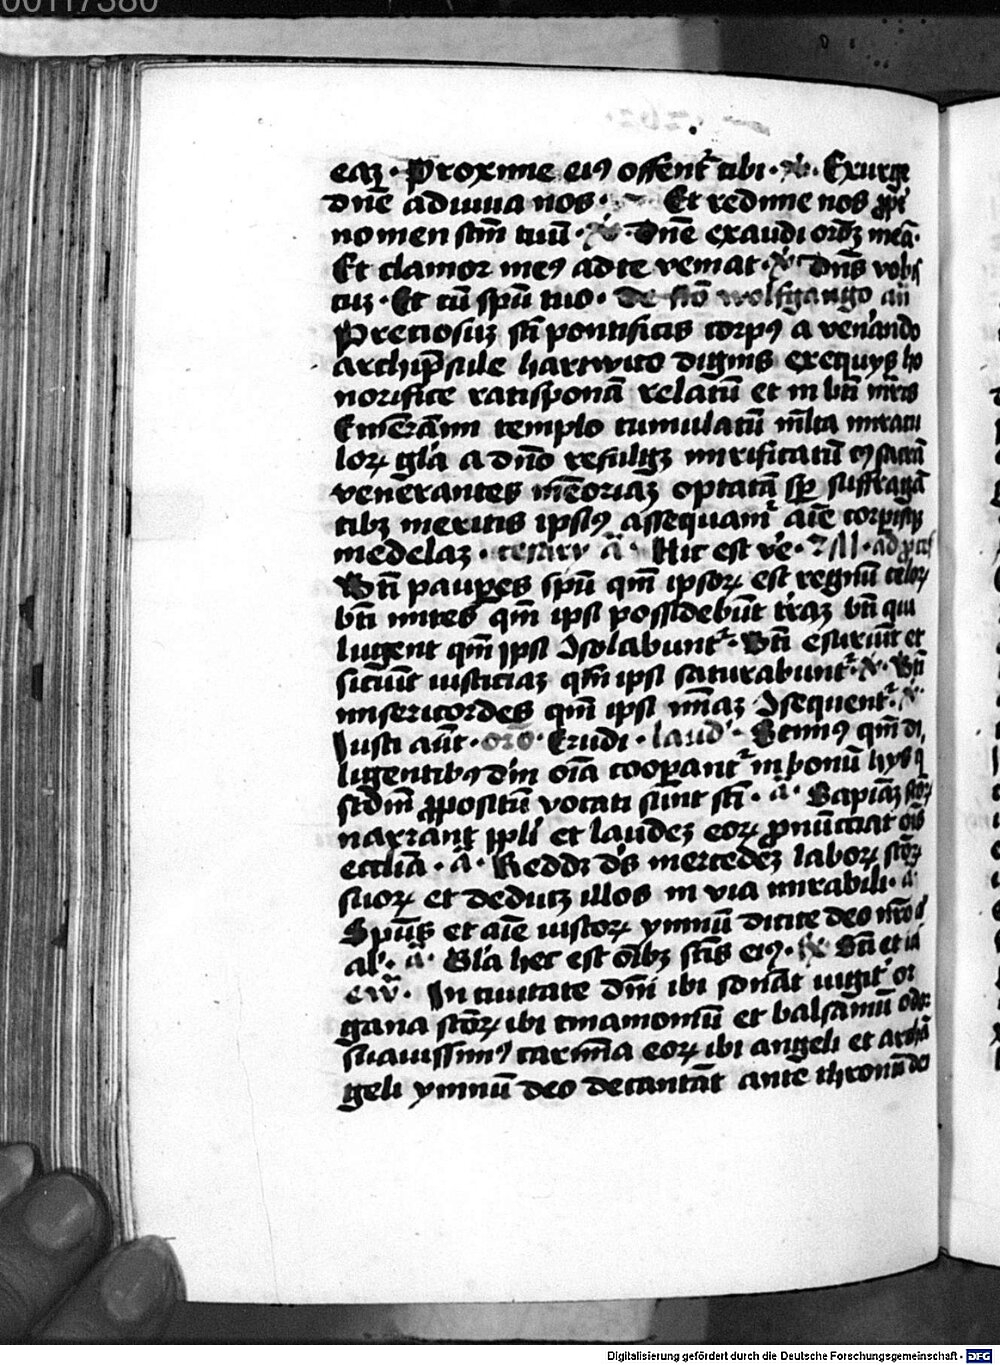 00117380
eaꝫ · Proxime eiꝰ offent᷑ tibi · ℣ · Exurge
dn̄e adiuua nos · Et redime nos ꝓpt᷑
nomen scm̄ tuū · ℣ · Dn̄e exaudi or̄oꝫ meā ·
Et clamor meꝰ ad te veniat · ℣ · Dn̄s vobis
cuꝫ · Et cū spū tuo · De scō wolfgango an̄
Preciosuꝫ scī pontificis corpꝰ a ven̄ando
archip̄sule hartwico dignis exequijs ho
norifice ratisponā relatū et in btī mr̄is
Em̄erāmi templo tumulatū ml̄ta miracu
loꝝ gl̄a a dn̄o refulgꝫ mirificatū cꝰ sacrā
ven̄erantes mēoriaꝫ optatā sꝑ suffragā
tibꝫ meritis ipsiꝰ assequam᷑ aīe corpisqꝫ
medelaꝫ · ā · Hic est ve ·
Btī pauꝑes spū qm̄ ipsoꝝ est regnū celoꝝ
btī mites qm̄ ipsi possidebūt tr̄aꝫ btī qui
lugent qm̄ ipsi ꝯsolabunt᷑ · Btī esuriūt et
siciūt iusticiaꝫ qm̄ ipsi saturabunt᷑ · ℣ · Btī
misericordes qm̄ ipsi mīaꝫ ꝯsequent᷑ ·
Justi aūt · or̄o · Erudi · laud̾ · Scimꝰ qm̄ di
ligentibꝰ dm̄ oīa cooꝑant᷑ in bonū hijs q
scdm̄ ꝓpositū vocati sūnt scī · ā · Sapiāꝫ scōꝝ
narrant ppl̄i et laudeꝫ eoꝝ ꝓnūcciat oīs
eccl̄ia · ā · Reddꝫ ds̄ mercedeꝫ laboꝝ scōꝝ
suoꝝ et deducꝫ illos in via mirabili · ā
Spūs et aīe iustoꝝ ymnū dicite deo nr̄o
al̄ · ā · Gl̄a hec est oībꝫ scīs eiꝰ · Scī et iu
In ciuitate dn̄i ibi sonāt iugit᷑ or
gana scōꝝ ibi cinamomū et balsāmū odor
suauissimꝰ carmīa eoꝝ ibi angeli et archā
geli ymnū deo decantāt ante thronū dei
Digitalisierung gefördert durch die Deutsche Forschungsgemeinschaft - DFG